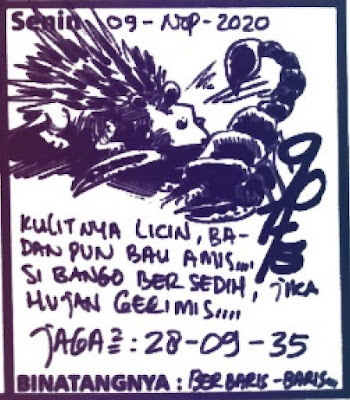 Senin, 09-NOP-2020
KULITNYA LICIN, BA-
DAN PUN BAU AMIS....
SI BANGO BERSEDIH, JIKA
HUJAN GERIMIS....
JAGA2 : 28-09-35
BINATANGNYA : BERBARIS-BARIS...